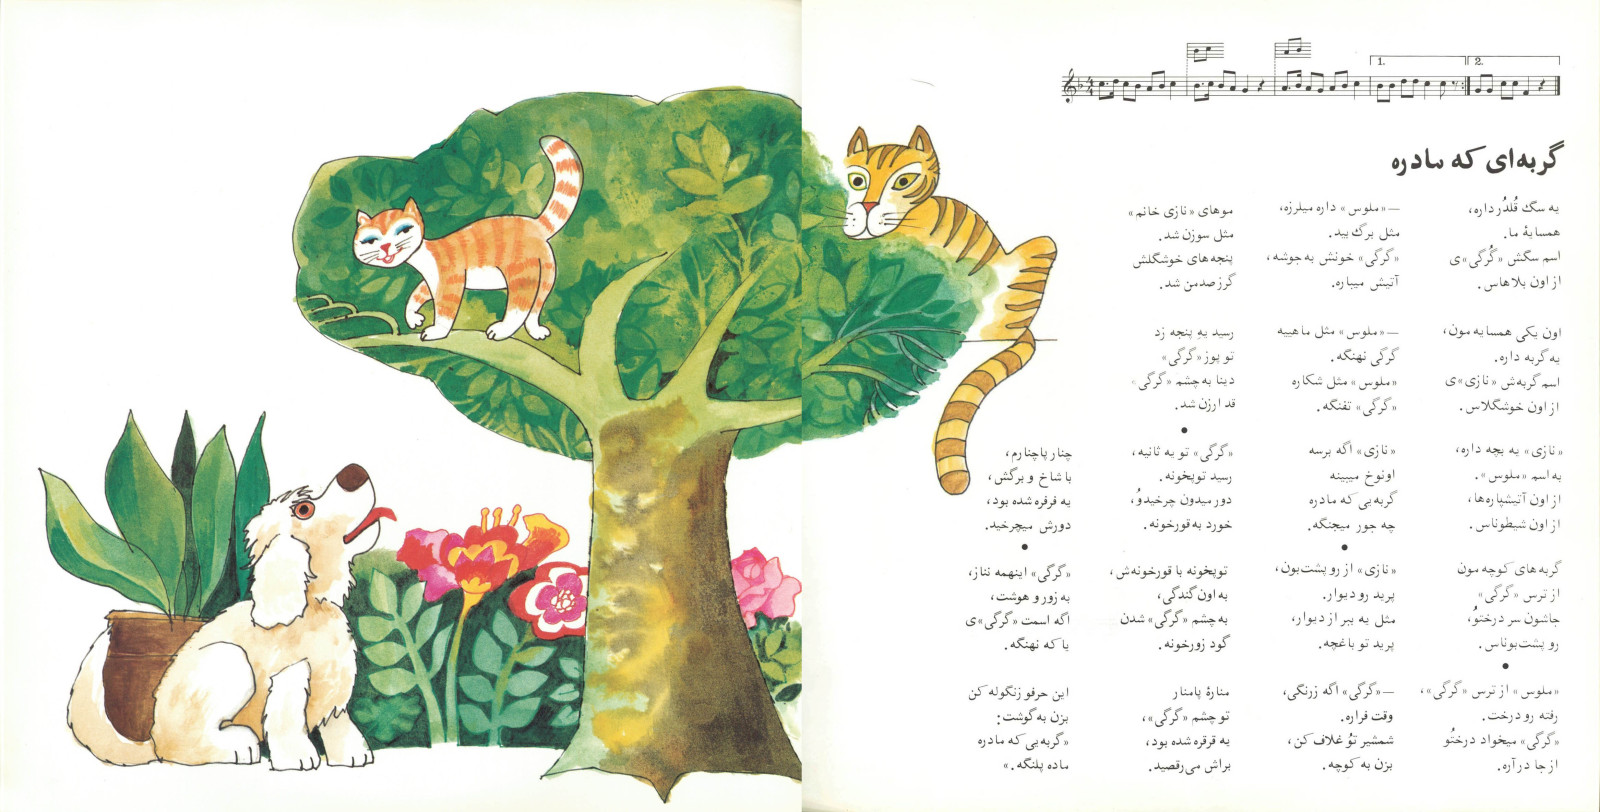 1.
2.
گربه‌ای که مادره
یه سگ قُلدُر داره،
همسایهٔ ما.
اسم سگش «گُرگی»ی
از اون بلاهاس.
اون یکی همسایه مون،
یه گربه داره.
اسم گربه‌ش «نازی»ی
از اون خوشگلاس.
«نازی» یه بچه داره،
به اسم «ملوس».
از اون آتیشپاره‌ها،
از اون شیطوناس.
گربه‌های کوچه مون
از ترس «گرگی»
جاشون سر درختُو،
رو پشت‌بوناس.
●
«ملوس» از ترس «گرگی»،
رفته رو درخت.
«گرگی» میخواد درختُو
از جا درآره.
—«ملوس» داره میلرزه،
مثل برگ بید.
«گرگی» خونش به جوشه،
آتیش میباره.
—«ملوس» مثل ماهییه
گرگی نهنگه.
«ملوس» مثل شکاره
«گرگی» تفنگه.
«نازی» اگه برسه
اونوخ میبینه
گربه‌یی که مادره
چه جور میجنگه.
●
«نازی» از رو پشت‌بون،
پرید رو دیوار.
مثل یه ببر از دیوار،
پرید تو باغچه.
—«گرگی» اگه زرنگی،
وقت فراره.
شمشیر توُ غلاف کن،
بزن به کوچه.
موهای «نازی خانم»
مثل سوزن شد.
پنجه‌های خوشگلش
گرز صدمن شد.
رسید یهِ پنجه زد
تو پوز «گرگی»
دینا به چشم «گرگی»
قد ارزن شد.
●
«گرگی» تو یه ثانیه،
رسید توپخونه.
دور میدون چرخیدوُ،
خورد به قورخونه.
توپخونه با قورخونه‌ش،
به اون گندگی،
به چشم «گرگی» شدن
گود زورخونه.
منارهٔ پامنار
تو چشم «گرگی»،
یه قرقره شده بود،
براش می‌رقصید.
چنار پاچنارم،
با شاخ و برگش،
یه فرفره شده بود،
دورش میچرخید.
●
«گرگی» اینهمه نناز،
به زور و هوشت،
اگه اسمت «گرگی»ی
یا که نهنگه.
این حرفو زنگوله کن
بزن به گوشت:
«گربه‌یی که مادره
ماده پلنگه.»